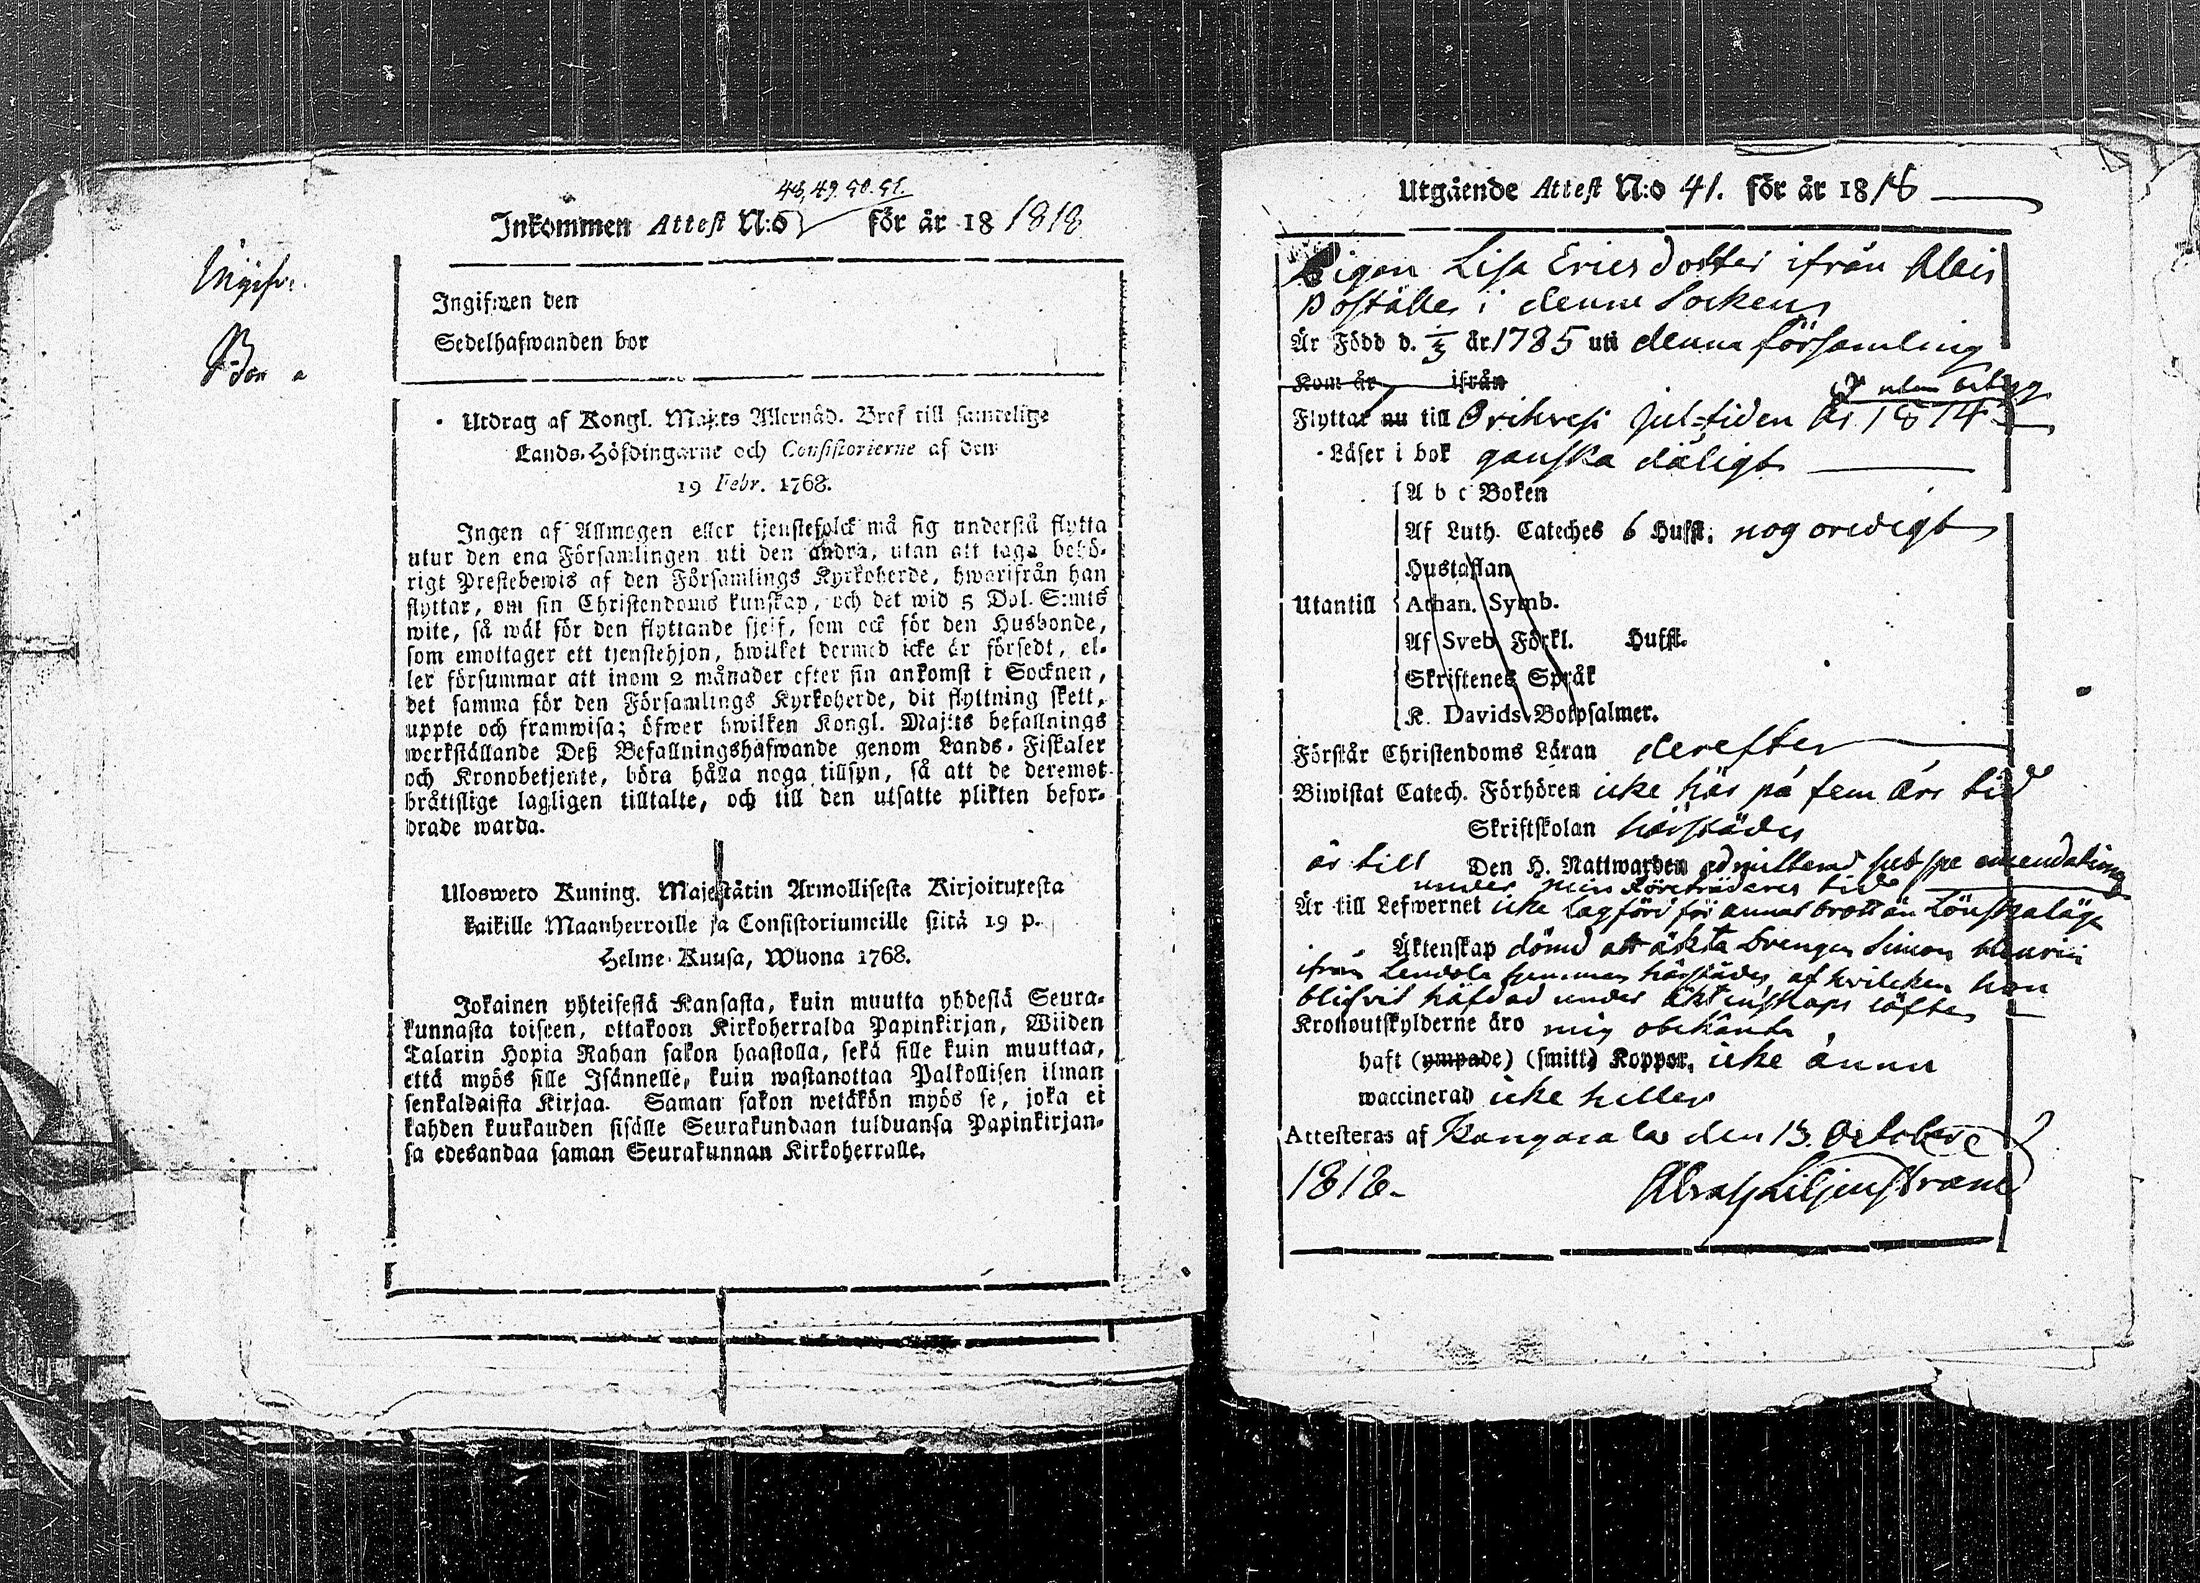 48, 49. 50. 51.
Inkommen Attest N:o för år 18 1818
Ingifwen den
Sedelhafwanden bor
Utdrag af Kongl. Maj:ts Allernåd. Bref till samtelige
Lands-Höfdingarne och Consistorierne af den
19 Febr. 1768.
Ingen af Allmogen eller tjenstefolck må sig understå flytta
utur den ena Församlingen uti den andra, utan att taga behö-
rigt Prestebewis af den Församlings Kyrkoherde, hwarifrån han
flyttar, om sin Christendoms kunskap, och det wid 5 Dal. S:mts
wite, så wäl för den flyttande sjelf, som ock för den Husbonde,
som emottager ett tjenstehjon, hwilket dermed icke är försedt, el-
ler försummar att inom 2 månader efter sin ankomst i Socknen,
det samma för den Församlings Kyrkoherde, dit flyttning skett,
uppte och framwisa; öfwer hwilken Kongl. Maj:ts befallnings
werkställande Deß Befallningshafwande genom Lands-Fiskaler
och Kronobetjente, böra hålla noga tillsyn, så att de deremot
bråttslige lagligen tilltalte, och till den utsatte plikten befor-
drade warda.
Ulosweto Kuning. Majestätin Armollisesta Kirjoituxesta
kaikille Maanherroille ja Consistoriumeille siitä 19 p.
Helme-Kuusa, Wuona 1768.
Jokainen yhteisestä Kansasta, kuin muutta yhdestä Seura-
kunnasta toiseen, ottakoon Kirkoherralda Papinkirjan, Wiiden
Talarin Hopia Rahan sakon haastolla, sekä sille kuin muuttaa,
että myös sille Isännelle, kuin wastanottaa Palkollisen ilman
senkaldaista Kirjaa. Saman sakon wetäkön myös se, joka ei
kahden kuukauden sisälle Seurakundaan tulduansa Papinkirjan-
sa edesandaa saman Seurakunnan Kirkoherralle.
Utgående Attest N:o 41. för år 1818
Pigan Lisa Ericsdotter ifrån
Boställe i denna Socken
Är Född d. år 1785 uti denna församling
Kom år ifrån
Flyttar nu till Orihvesi jul-tiden år 1814
Läser i bok ganska dåligt
A b c Boken
Af Luth. Cateches 6 Hufst. nog oredigt
Hustaflan
Utantill Athan. Symb.
Af Sveb. Förkl. Hufst.
Skriftenes Språk
K. Davids Botpsalmer.
Förstår Christendoms Läran derefter
Biwistat Catech. Förhören icke här på fem års tid
Skriftskolan härstädes
är till Den H. Nattwarden admitterad sub spe emendationis
under min Företrädares tid
Är till Lefwernet icke lagförd för annat brott än Lönskaläge
Äktenskap dömd att äkta Drengen Simon Henric
ifrån hemman härstädes, af hvilcken hon
blifvit häfdad under äktenskaps löfte
Kronoutskylderne äro mig obekanta
haft (ympade) (smitt) Koppor, icke ännu
waccinerad icke heller
Attesteras af Kangasala den 13. Octobris
1818. Abrah Liljenstrand